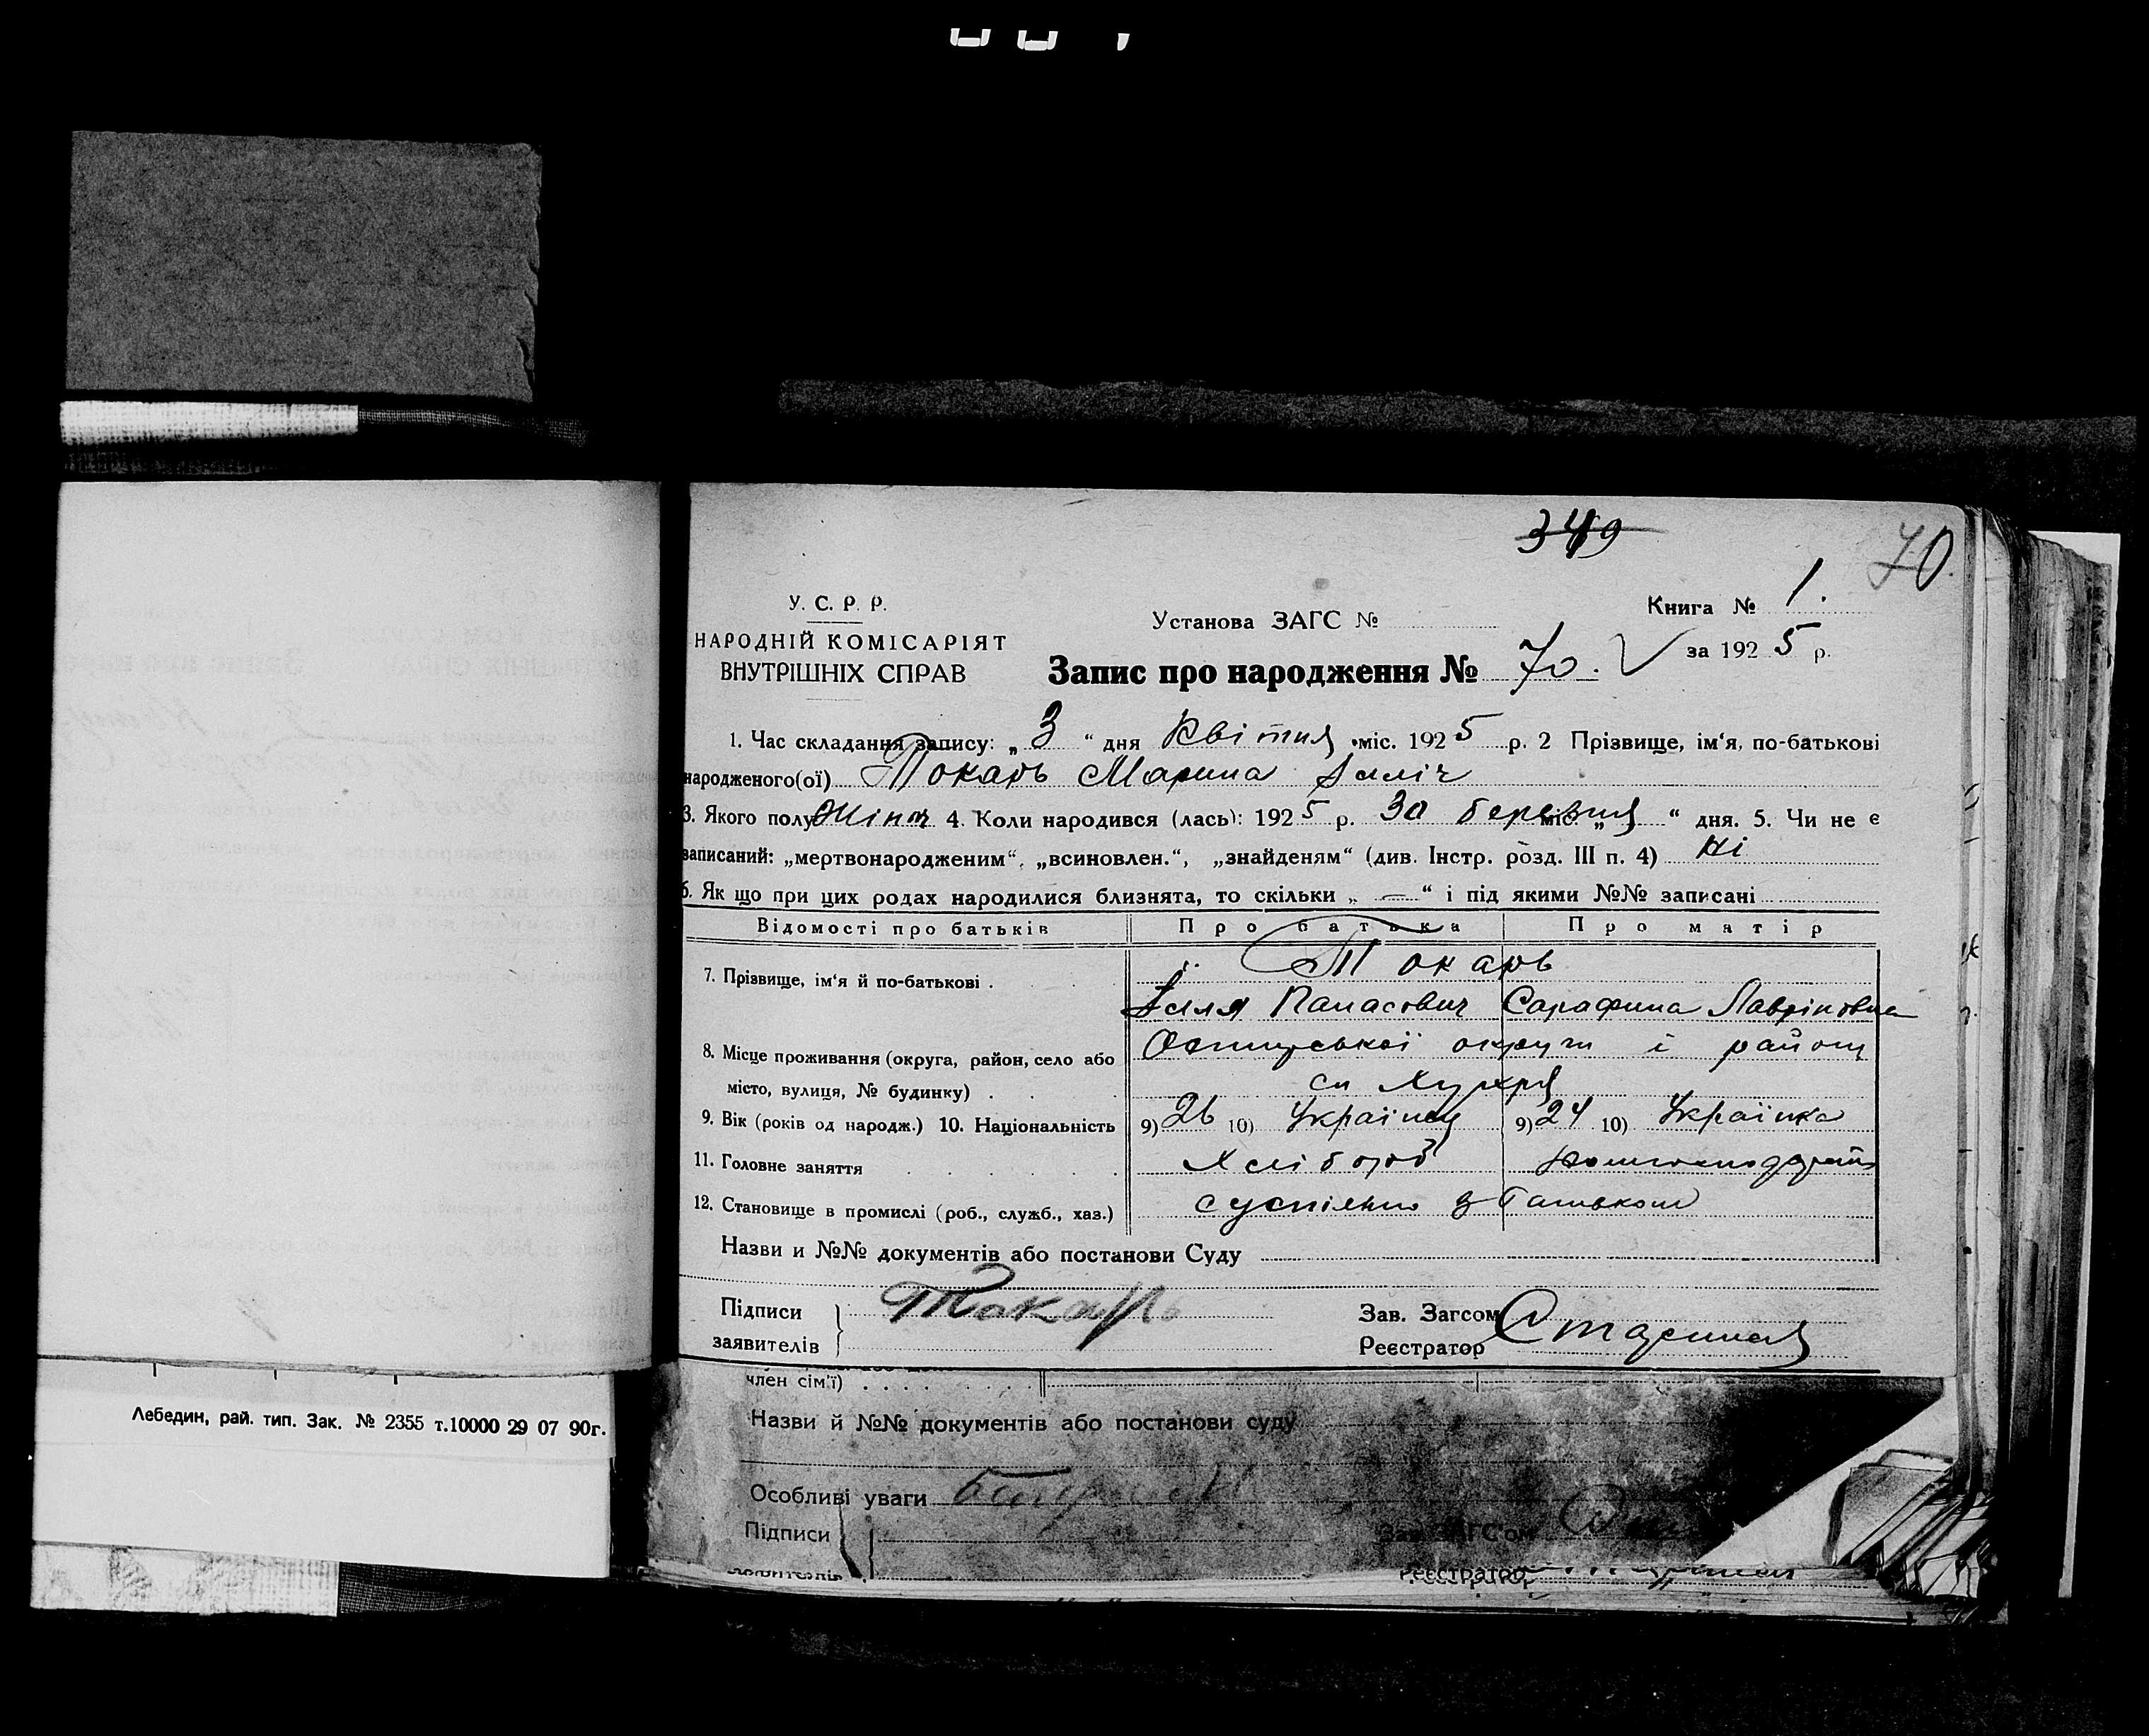 349
70.
У. С. Р. Р.
НАРОДНІЙ КОМІСАРІЯТ
ВНУТРІШНІХ СПРАВ
Установа ЗАГС №
Книга № 1.
за 1925 р.
Запис про народження № 70.
1. Час складання запису: „3“ дня Квітня міс. 1925 р. 2 Прізвище, ім‘я, по-батькові
народженого(ої) Токарь Марина Ілліч
3. Якого полу Жіноч 4. Коли народився (лась): 1925 р. 30 березня міс. „ “ дня. 5. Чи не є
записаний: „мертвонародженим“, „всиновлен.“, „знайденям“ (див. Інстр. розд. III п. 4) Ні
6. Як що при цих родах народилися близнята, то скільки „ — “ і під якими №№ записані
Відомості про батьків Про батька Про матір
7. Прізвище, ім‘я й по-батькові . Токарь
Ілля Панасович Сарафина Лавріновна
8. Місце проживання (округа, район, село або Охтирської округи і району
місто, вулиця, № будинку) . с. Хухря
9. Вік (років од народж.) 10. Національність 9) 26 10) Українец 9) 24 10) Українка
11. Головне заняття Хлібороб
12. Становище в промислі (роб., служб., хаз.) суспільно з батьком
Назви и №№ документів або постанови Суду
Підписи Токарь
заявителів
Зав. Загсом
Реєстратор
член сім‘ї)
Лебедин, рай. тип. Зак. № 2355 т.10000 29 07 90г.
Назви й №№ документів або постанови суду
Особливі уваги
Підписи
Зав. ЗАГС‘ом
заявителів
Реєстратор